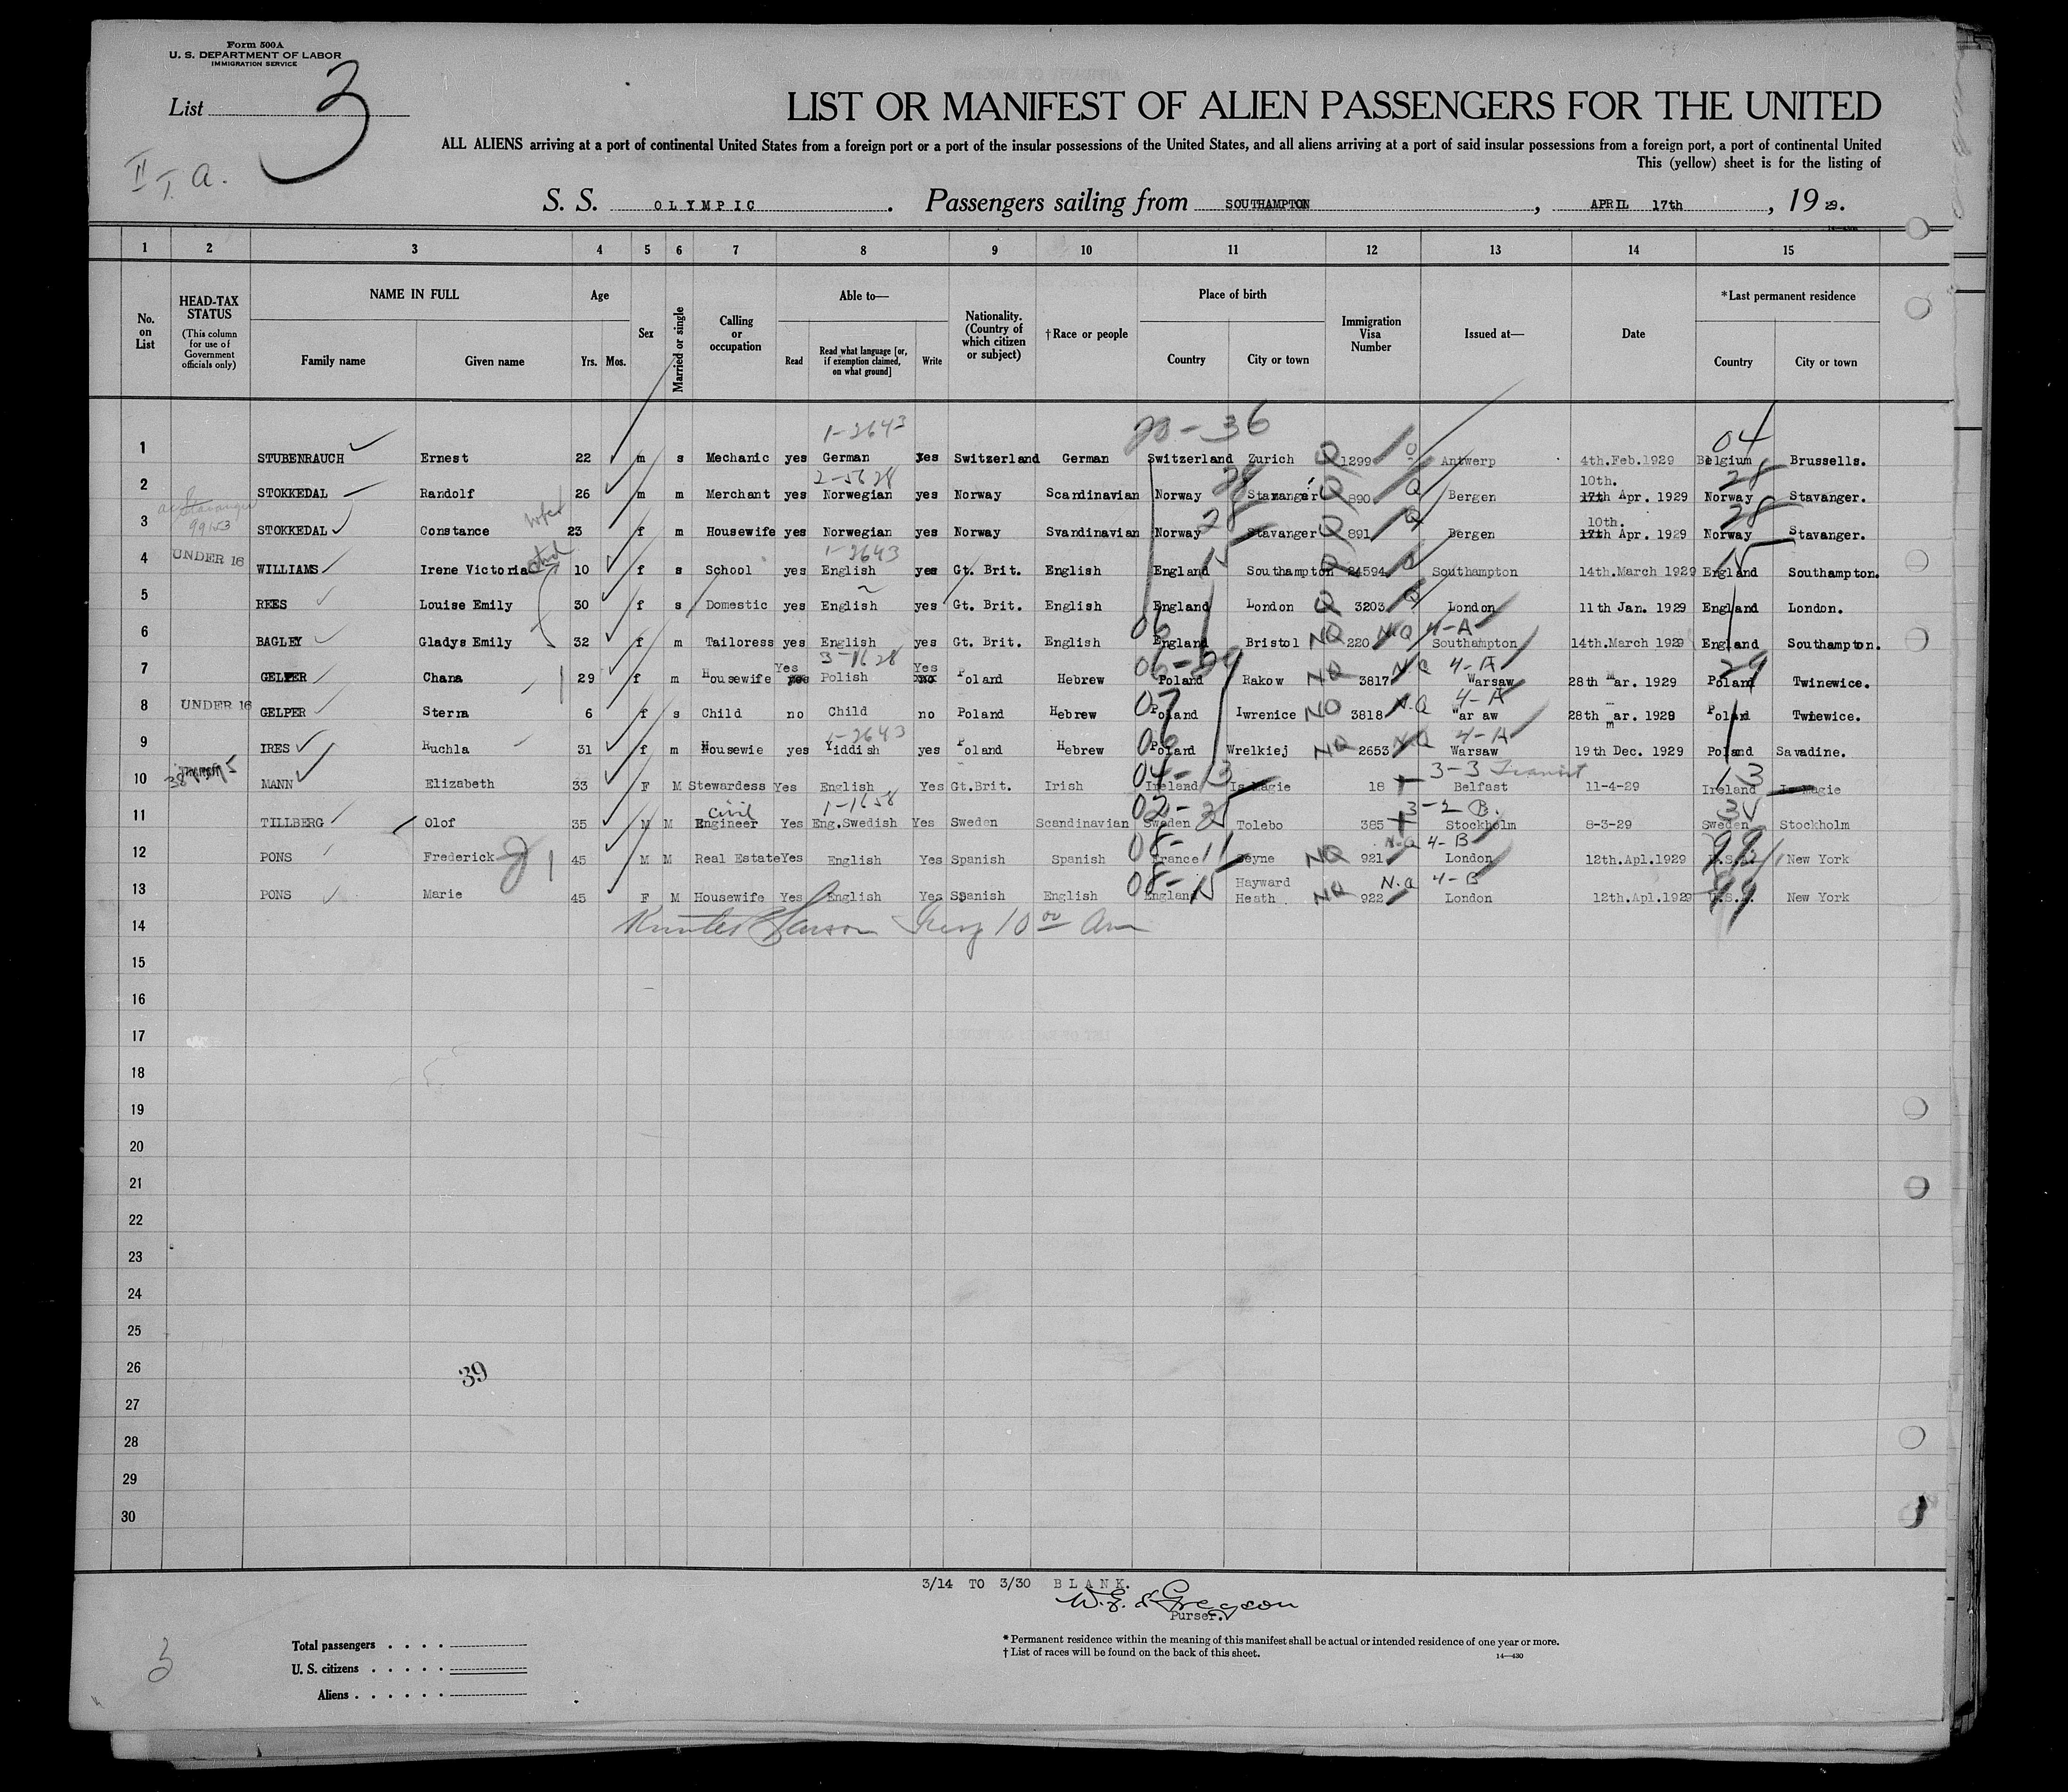 Form 500A
U. S. DEPARTMENT OF LABOR
IMMIGRATION SERVICE
List 3
II T. a.
LIST OR MANIFEST OF ALIEN PASSENGERS FOR THE UNITED
ALL ALIENS arriving at a port of continental United States from a foreign port or a port of the insular possessions of the United States, and all aliens arriving at a port of said insular possessions from a foreign port, a port of continental United
This (yellow) sheet is for the listing of
S. S. OLYMPIC. Passengers sailing from SOUTHAMPTON, APRIL 17th, 19 29.
1 2 3 4 5 6 7 8 9 10 11 12 13 14 15
No. on List
HEAD-TAX STATUS (This column for use of Government officials only)
NAME IN FULL
Family name Given name
Age
Yrs. Mos.
Sex
Married or single
Calling or occupation
Able to—
Read Read what language [or, if exemption claimed, on what ground] Write
Nationality. (Country of which citizen or subject)
†Race or people
Place of birth
Country City or town
Immigration Visa Number
Issued at—
Date
*Last permanent residence
Country City or town
1-2643 20-36 04
1 STUBENRAUCH Ernest 22 m s Mechanic yes German yes Switzerland German Switzerland Zurich Q 1299 Antwerp 4th.Feb.1929 Belgium Brussells.
2-5628 28 10th. 28
2 STOKKEDAL Randolf 26 m m Merchant yes Norwegian yes Norway Scandinavian Norway Stavanger Q 890 Q Bergen 17th Apr. 1929 Norway Stavanger.
99153 28 10th. 28
3 STOKKEDAL Constance 23 f m Housewife yes Norwegian yes Norway Svandinavian Norway Stavanger Q 891 Q Bergen 17th Apr. 1929 Norway Stavanger.
1-2643 15 15
4 UNDER 16 WILLIAMS Irene Victoria 10 f s School yes English yes Gt. Brit. English England Southampton Q 24594 Southampton 14th.March 1929 England Southampton.
5 REES Louise Emily 30 f s Domestic yes English yes Gt. Brit. English England London Q 3203 Q London 11th Jan. 1929 England London.
06 4-A
6 BAGLEY Gladys Emily 32 f m Tailoress yes English yes Gt. Brit. English England Bristol NQ 220 NQ Southampton 14th.March 1929 England Southampton.
Yes 3-1628 Yes 06-29 4-A 29
7 GELPER Chana 29 f m Housewife yes Polish no Poland Hebrew Poland Rakow NQ 3817 NQ Warsaw 28th mar. 1929 Poland Twinewice.
07 4-A
8 UNDER 16 GELPER Sterna 6 f s Child no Child no Poland Hebrew Poland Iwrenice NQ 3818 N.Q War aw 28th mar. 1929 Poland Twiewice.
1-2643 06 4-A
9 IRES Ruchla 31 f m Housewie yes Yiddish yes Poland Hebrew Poland Wrelkiej NQ 2653 NQ Warsaw 19th Dec. 1929 Poland Savadine.
04-13 3-3 Transit 13
10 MANN Elizabeth 33 F M Stewardess Yes English Yes Gt.Brit. Irish Ireland Is Magie 18 Belfast 11-4-29 Ireland Is Magie
Civil 1-1658 02-35 3-2 B.
11 TILLBERG Olof 35 M M Engineer Yes Eng.Swedish Yes Sweden Scandinavian Sweden Tolebo 385 Stockholm 8-3-29 Sweden Stockholm
08-11 N.Q 4-B 99
12 PONS Frederick 45 M M Real Estate Yes English Yes Spanish Spanish France Seyne NQ 921 London 12th.Apl.1929 U.S.A. New York
08-15 Hayward N.Q 4-B 99
13 PONS Marie 45 F M Housewife Yes English Yes Spanish English England Heath NQ 922 London 12th.Apl.1929 U.S.A. New York
14
15
16
17
18
19
20
21
22
23
24
25
26
39
27
28
29
30
3/14 TO 3/30 BLANK.
Purser.
Total passengers
U. S. citizens
Aliens
3
* Permanent residence within the meaning of this manifest shall be actual or intended residence of one year or more.
† List of races will be found on the back of this sheet.
14—430